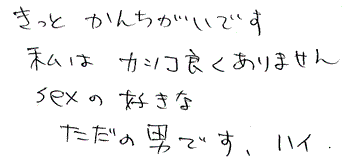 きっと かんちがいです
私は カッコ良くありません
sexの 好きな
ただの 男です、ハイ.